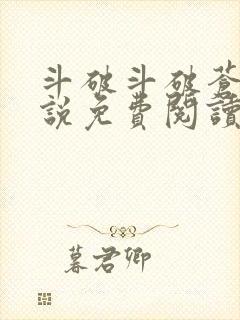 斗破斗破蒼
說免費閱讀
暮君卿